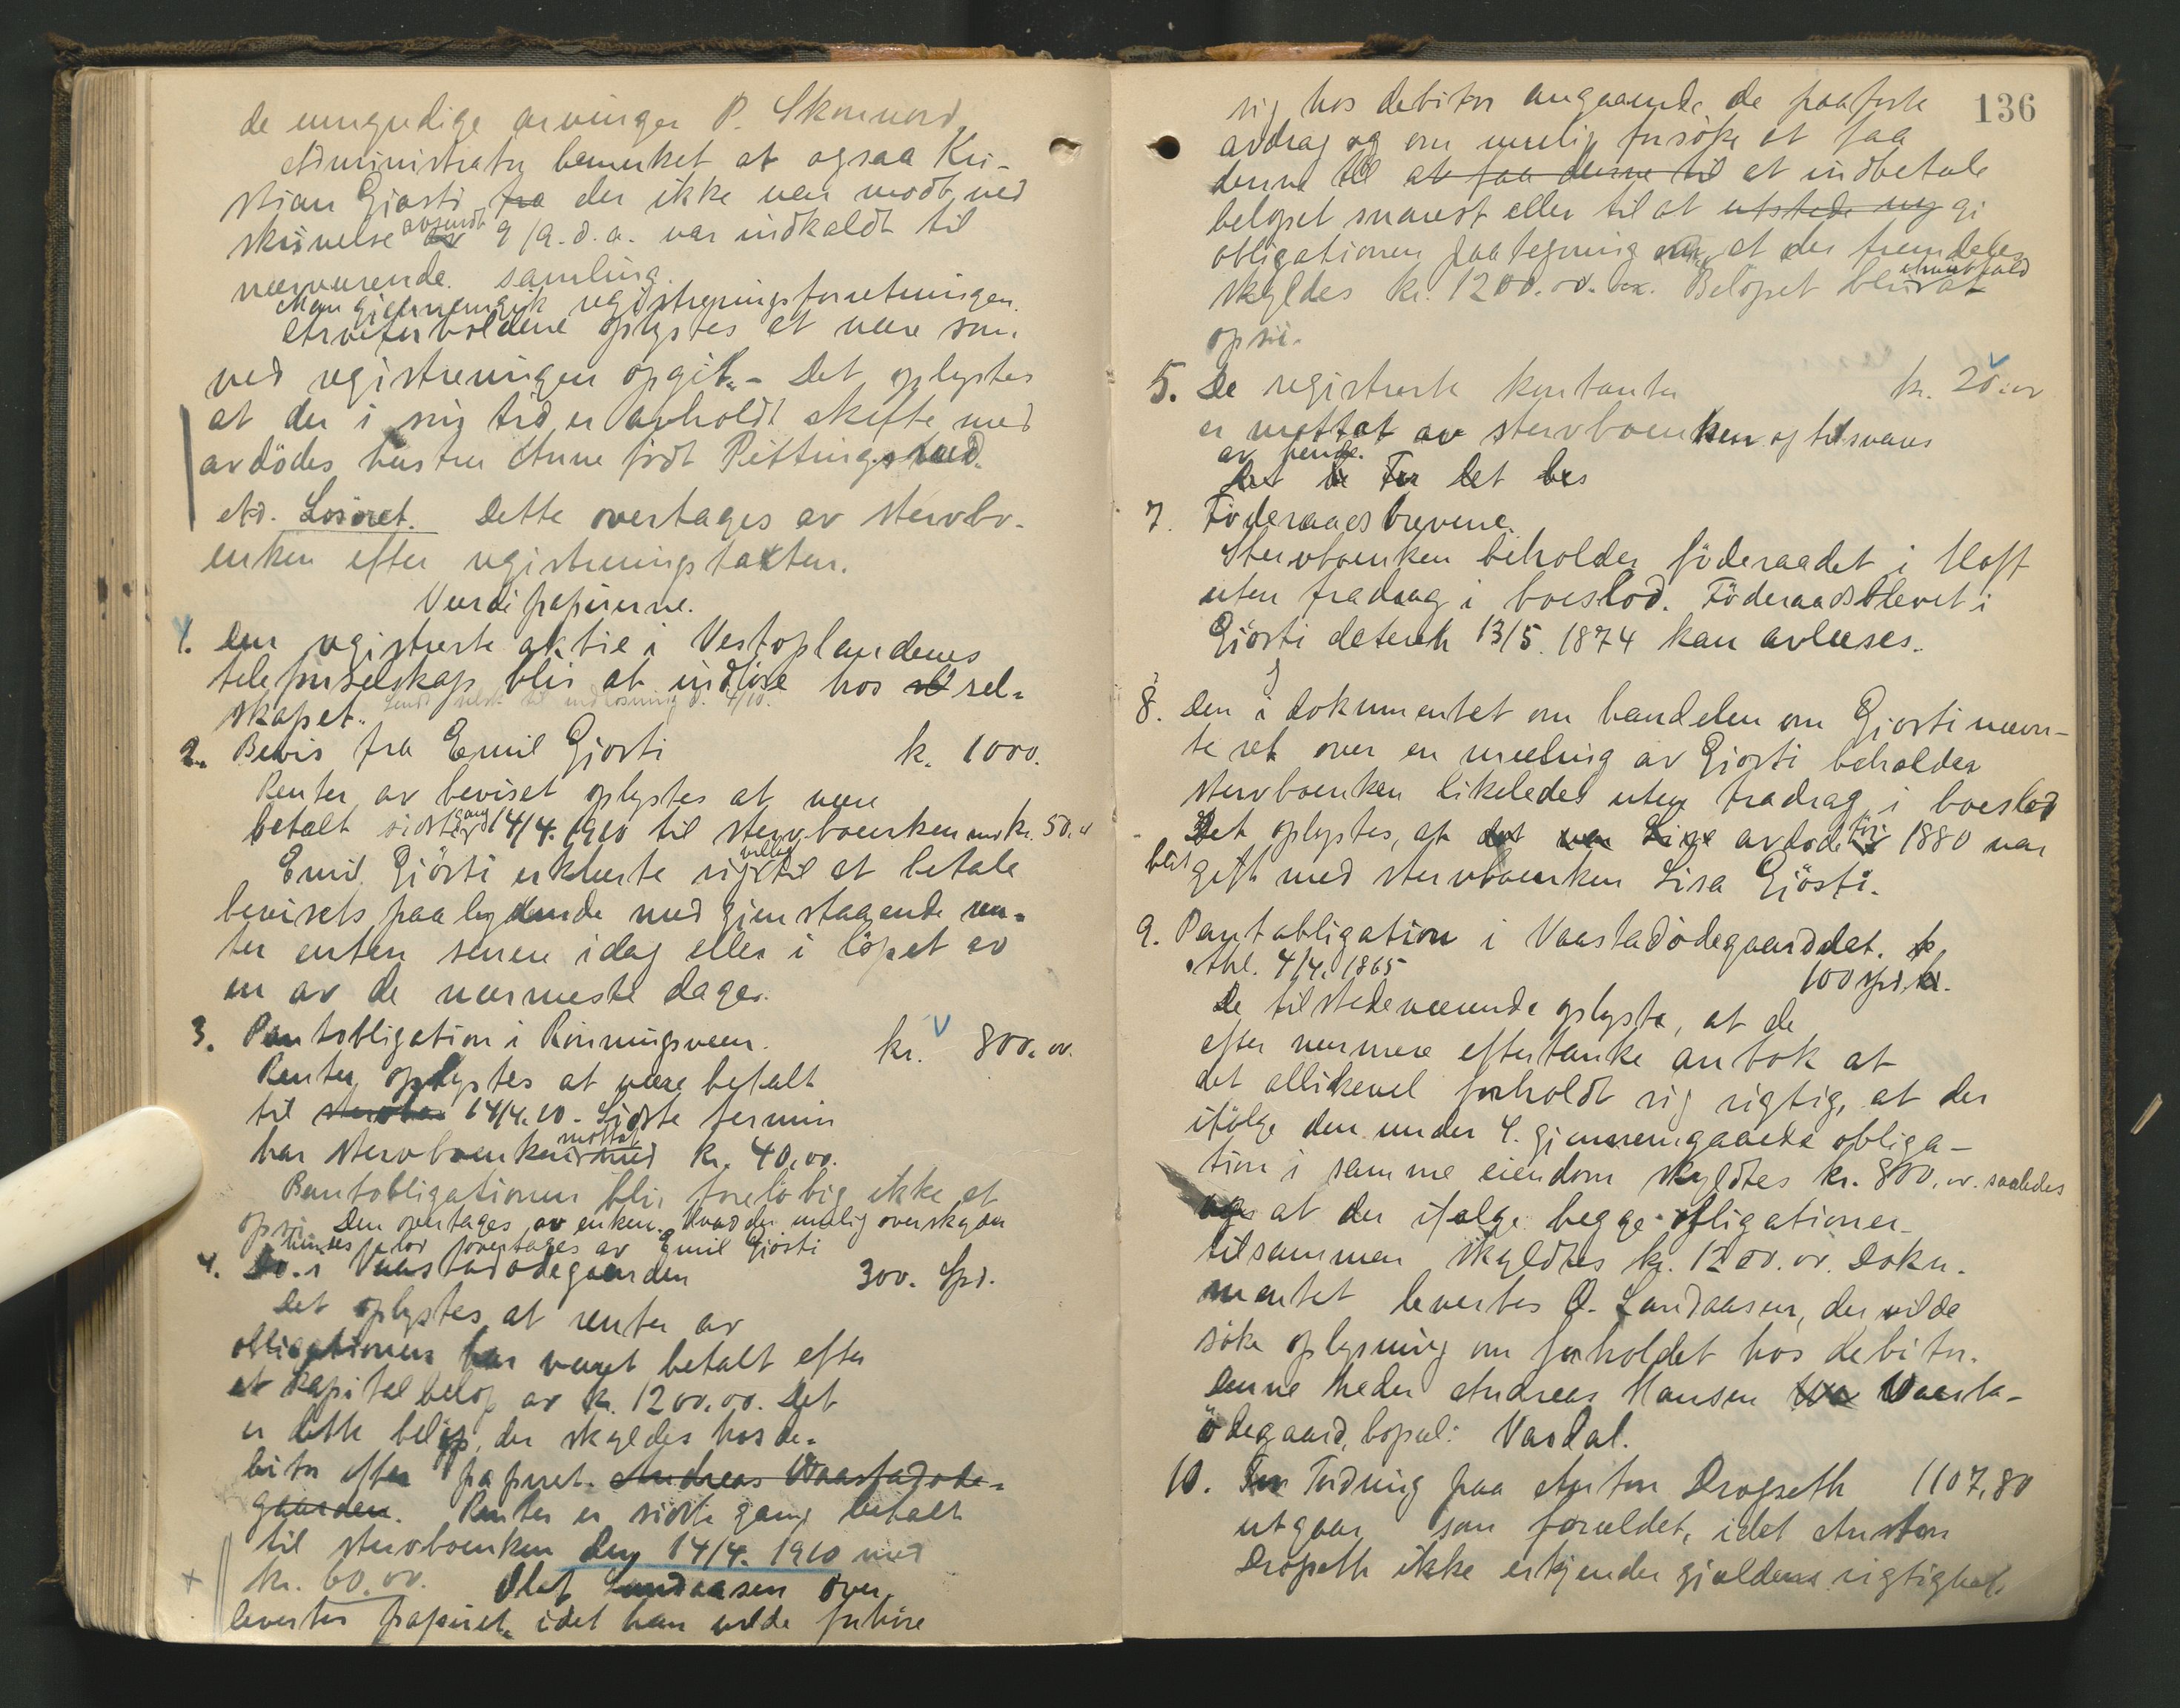 de umyndige arvinger P. Skonnord,
Administrator bemerket at ogsaa Kri-
stian Gjøsti fra der ikke var mødt, ved
skrivelse avsendt 9/9. d. a. var indkaldt til
nærværende samling.
Man gjennemgik registreringsforretningen.
Arveforholdene oplystes at være som
ved registreringen opgit. - Det oplystes
at der i sin tid er avholdt skifte med
avdødes hustru Anne født
Ad. Løsøret. Dette overtages av stervbo-
enken efter registreringstaksten.
Værdipapirerne.
1. Den registrerte aktie i Vestoplandenes
telefonselskap blir at indløse hos sel-
skapet. Sendt selsk. til indløsning d. 4/10.
2. Bevis fra Emil Gjøsti kr. 1000.
Renter av beviset oplystes at være
betalt sidste gang 14/4. 1910 til stervboenken med kr. 50.
Emil Gjösti erklærte sig villig til at betale
bevisets paalydende med gjenstaaende ren-
ter enten senere idag eller i löpet av
en av de nærmeste dager.
3. Pantobligation i Rönningsveen. kr. 800.00.
Renter oplystes at være betalt
til stervbo 14/4. 10. Sidste termin
har stervboenken mottat med kr. 40.00.
Pantobligationen blir foreløbig ikke at
opsi. Den overtages av enken. Hvad der mulig overskyder
hendes lod overtages av Emil Gjösti
4. Do. i Vaastadödegaarden 300. Spd.
Det oplystes at renter av
obligationen har været betalt efter
et kapitalbeløp av kr. 1200.00. Det
er dette beløp, der skyldes hos de-
bitor efter papiret. Andreas Vaastadöde-
gaarden. Renter er sidste gang betalt
til stervboenken den 14/4. 1910 med
kr. 60.00. Olaf Landaasen over-
levertes papiret, idet han vilde forhøre
136
sig hos debitor angaaende de paaførte
avdrag og om mulig forsöke at faa
denne til at faa denne til at indbetale
beløpet snarest eller til at utstede ny gi
obligationen paategning om, at der fremdeles
skyldes kr. 1200.00. Beløpet blir at
opsi.
5. De registrerte kontanter kr. 20.00
er mottat av stervboenken og tilsvares
av hende.
Det Før det
7. Föderaadsbrevene.
Stervboenken beholder föderaadet i Hoff
uten fradrag i boeslod. Föderaadsbrevet i
Gjösti dateret 13/5. 1874 kan avlæses.
8. Den i dokumentet om handelen om Gjøsti nævn-
te ret over en mæling av Gjøsti beholder
stervboenken likeledes uten fradrag i boeslod
Det oplystes, at det var Lisa avdøde før 1880 var
blit gift med stervboenken Lisa Gjösti.
9. Pantobligation i Vaastadödegaard dat.
thl. 4/4. 1865 100 spd. kr.
De tilstedeværende oplyste, at de
efter nærmere eftertanke antok at
det allikevel forholdt sig rigtig, at der
ifölge den under 4. gjennemgaaede obliga-
tion i samme eiendom skyldtes kr. 800.00. saaledes
og at der ifølge begge obligationer
tilsammen skyldtes kr. 1200.00. Doku-
mentet levertes O. Landaasen, der vilde
söke oplysning om forholdet hos debitor.
Denne heder Andreas Hansen Vaasta-
ödegaard, bopæl: Vardal.
10. Fordring paa Anton Drogseth 1107,80
utgaar som forældet, idet Anton
Drogseth ikke erkjender gjældens rigtighet.